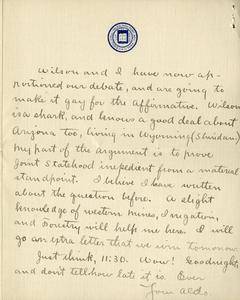 Wilson and I have now ap-
portioned our debate, and are going to
make it gay for the Affirmative. Wilson
is a shark, and knows a good deal about
Arizona too, living in Wyoming (Sheridan).
My part of the argument is to prove
joint Statehood inexpedient from a material
standpoint. I believe I have written
about the question before. A slight
knowledge of western mines, Irrigation,
and Forestry will help me here. I will
go an extra letter that we win tomorrow.
Just think, 11:30. Wow! Goodnight,
and don't tell how late it is. Ever
Your Aldo.